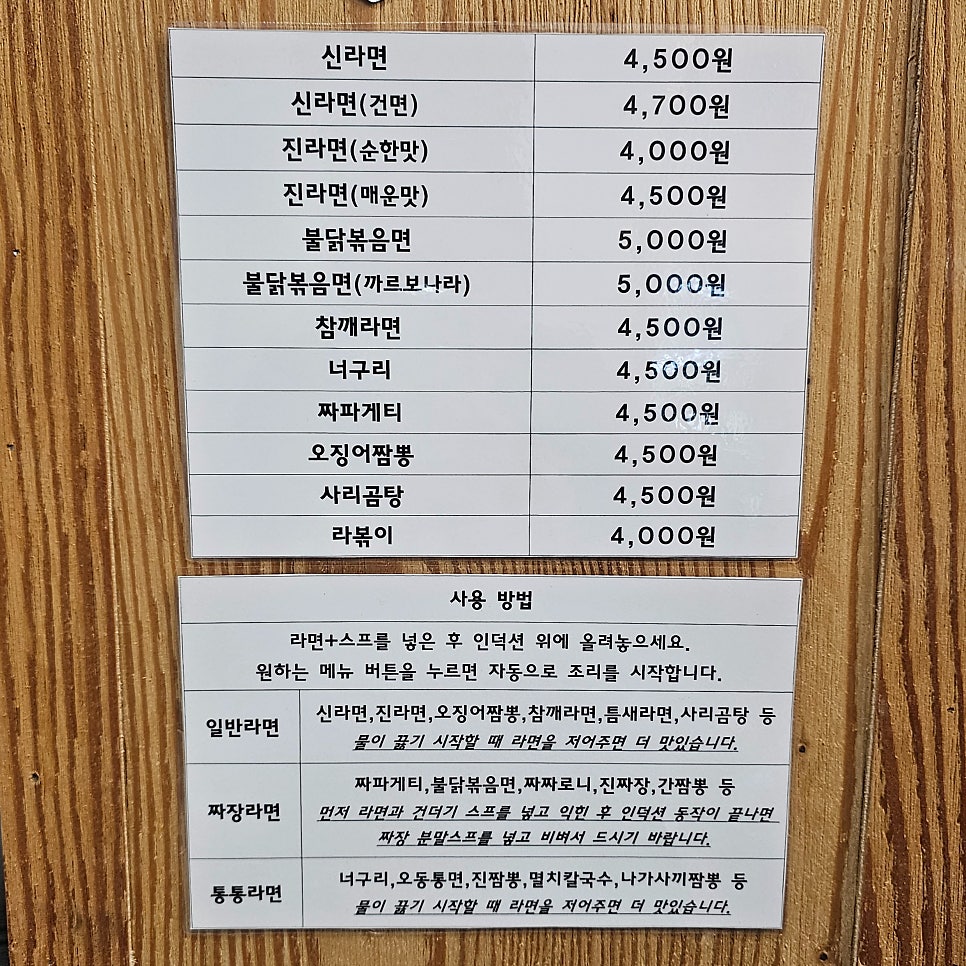 신라면 4,500원
신라면(건면) 4,700원
진라면(순한맛) 4,000원
진라면(매운맛) 4,500원
불닭볶음면 5,000원
불닭볶음면(까르보나라) 5,000원
참깨라면 4,500원
너구리 4,500원
짜파게티 4,500원
오징어짬뽕 4,500원
사리곰탕 4,500원
라볶이 4,000원
사용 방법
라면+스프를 넣은 후 인덕션 위에 올려놓으세요.
원하는 메뉴 버튼을 누르면 자동으로 조리를 시작합니다.
일반라면
신라면,진라면,오징어짬뽕,참깨라면,틈새라면,사리곰탕 등
물이 끓기 시작할 때 라면을 저어주면 더 맛있습니다.
짜장라면
짜파게티,불닭볶음면,짜짜로니,진짜장,간짬뽕 등
먼저 라면과 건더기 스프를 넣고 익힌 후 인덕션 동작이 끝나면
짜장 분말스프를 넣고 비벼서 드시기 바랍니다.
통통라면
너구리,오동통면,진짬뽕,멸치칼국수,나가사끼짬뽕 등
물이 끓기 시작할 때 라면을 저어주면 더 맛있습니다.